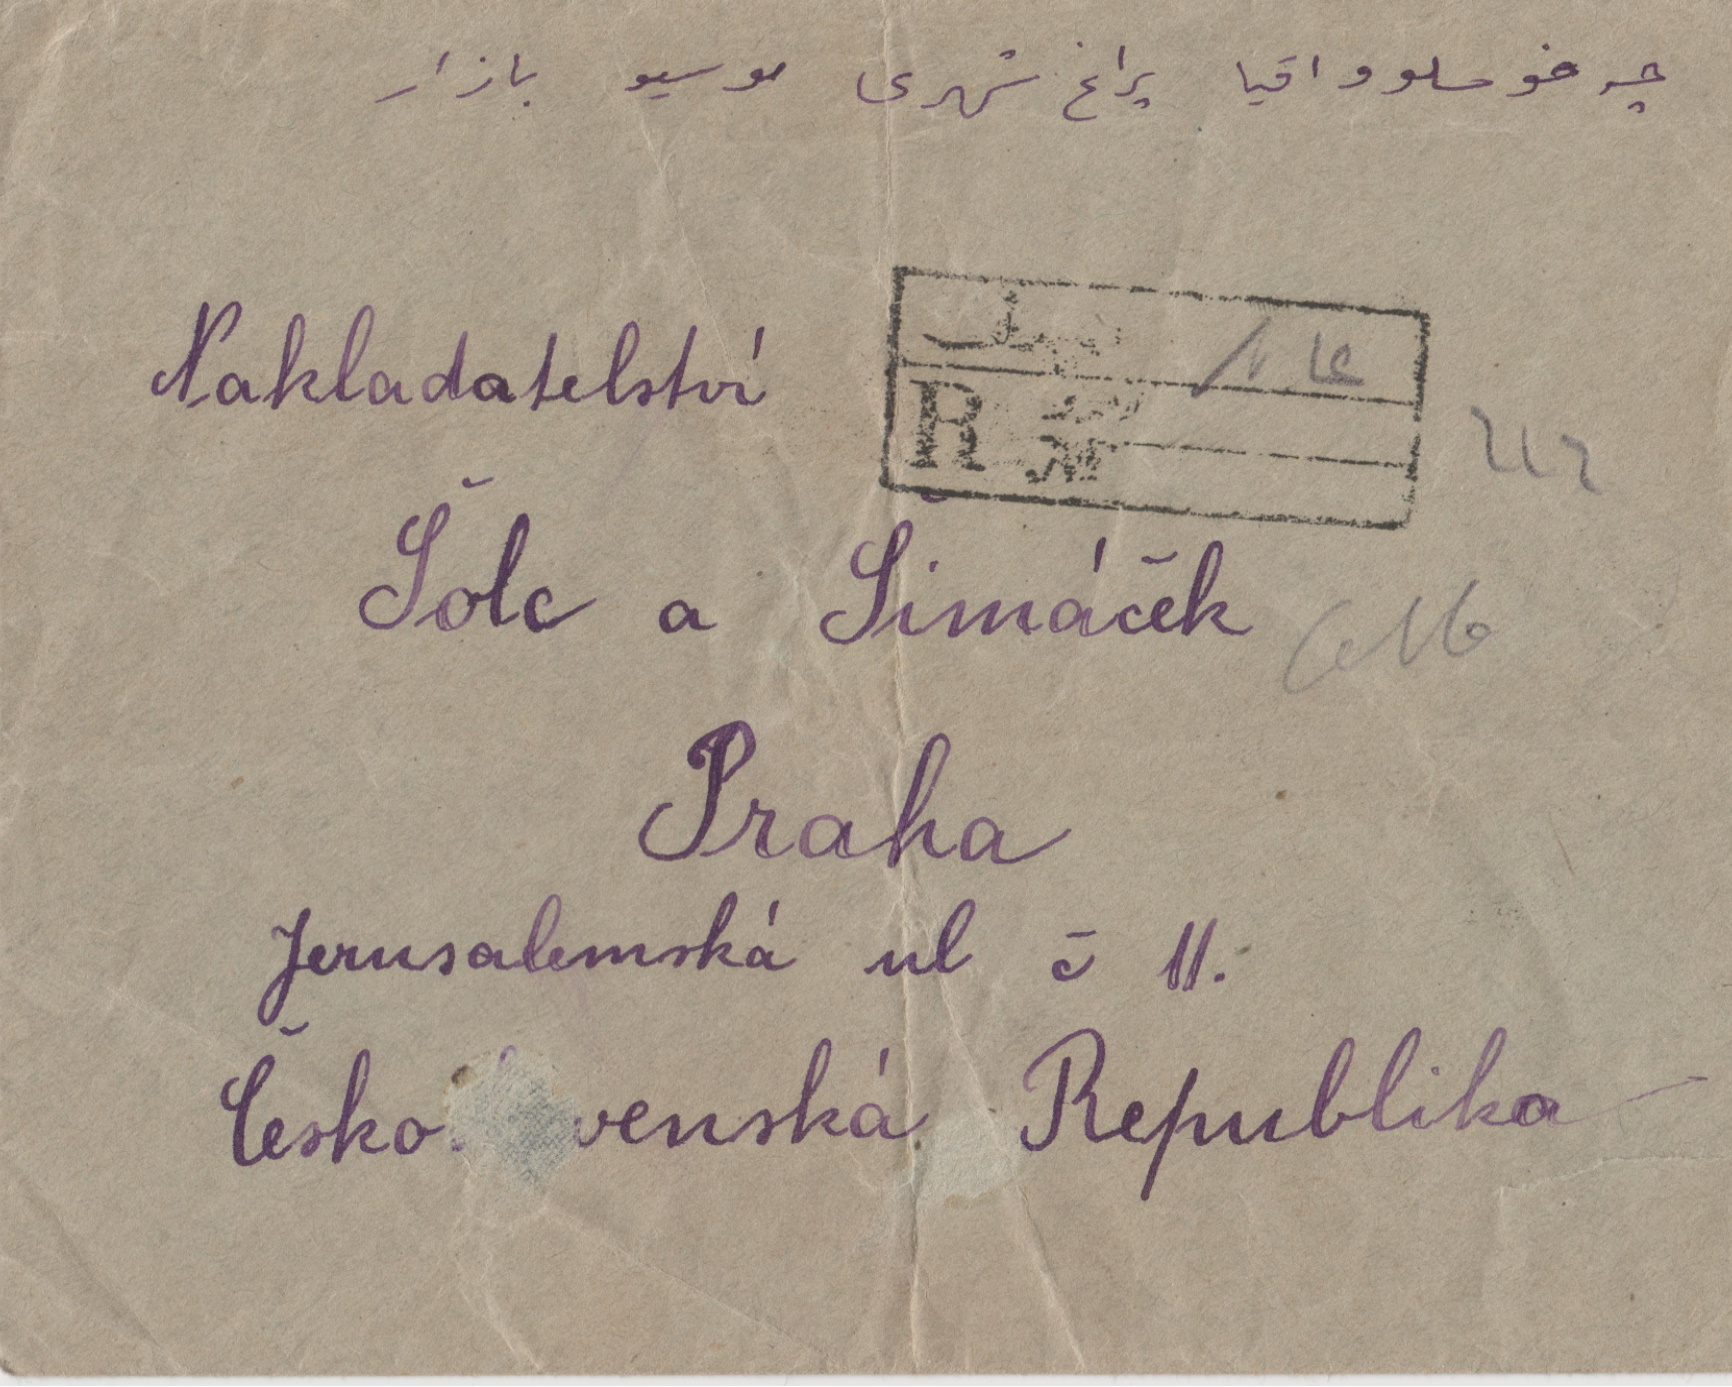 چه خوسلوواقیا پراغ شهری موسیو بازار
Nakladatelství
R №
Šolc a Šimáček
Praha
Jerusalemská ul č 11.
Česko venská Republika